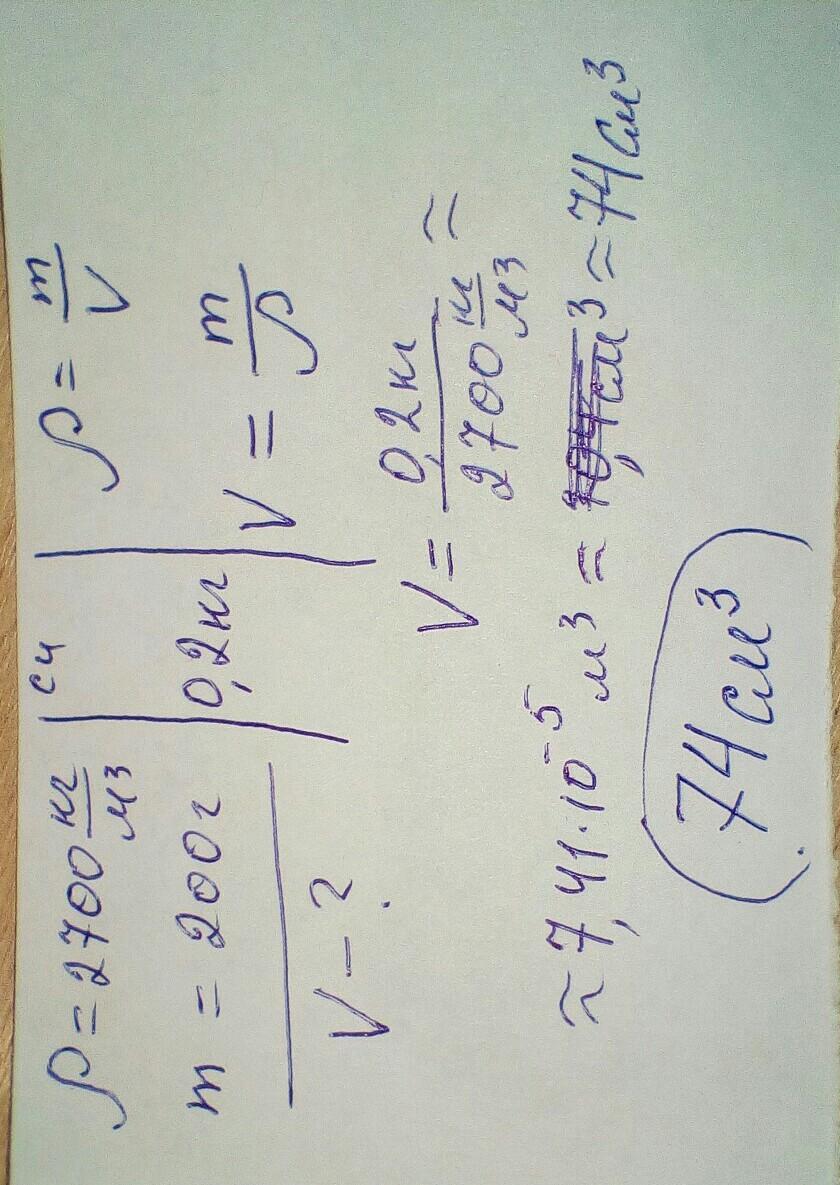 ρ = 2700 кг/м³ | СИ | ρ = m/V
m = 200г | 0,2кг | V = m/ρ
V - ?
V = 0,2кг / 2700 кг/м³ ≈
≈ 7,41·10⁻⁵ м³ ≈ ≈ 74 см³
74 см³